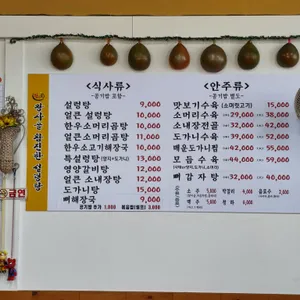 <식사류>
-공기밥 포함-
설렁탕 9,000
얼큰 설렁탕 10,000
한우소머리곰탕 10,000
얼큰 소머리곰탕 11,000
한우소고기해장국 10,000
특설렁탕 12,000
영양갈비탕 12,000
얼큰 소내장탕 12,000
도가니탕 15,000
뼈해장국 9,000
공기밥 추가 1,000
<안주류>
-공기밥 별도-
맛보기수육 (소머릿고기) 15,000
소머리수육 29,000 38,000
소내장전골 32,000 42,000
도가니수육 39,000 52,000
매운도가니찜 42,000 55,000
모듬수육 44,000 59,000
뼈감자탕 32,000 40,000
소주 5,000
맥주 5,000
막걸리 4,000
청하 6,000
음료수 2,000
금연